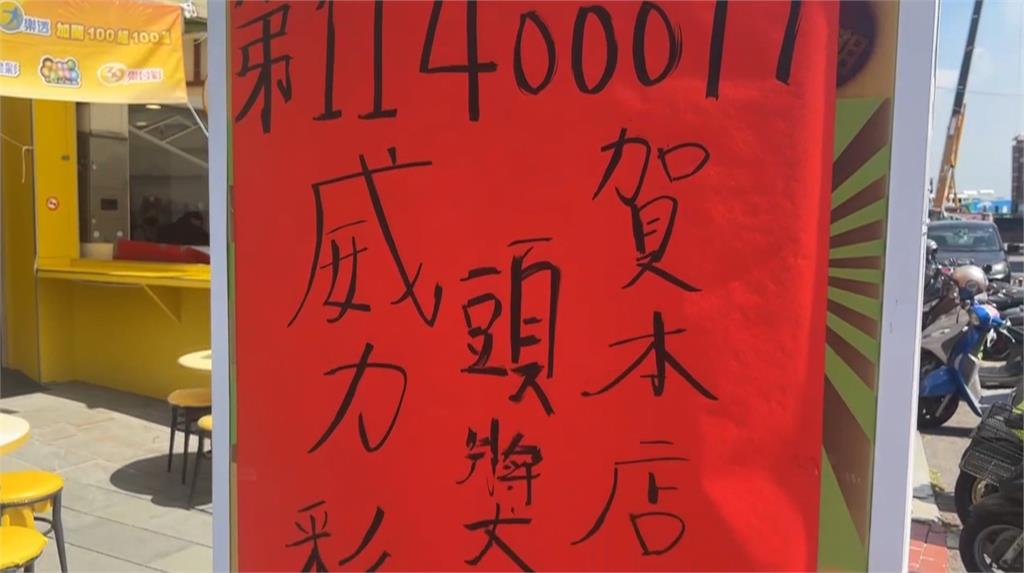 樂透 加開100組100萬
第11400077
賀本店
頭獎
威力彩